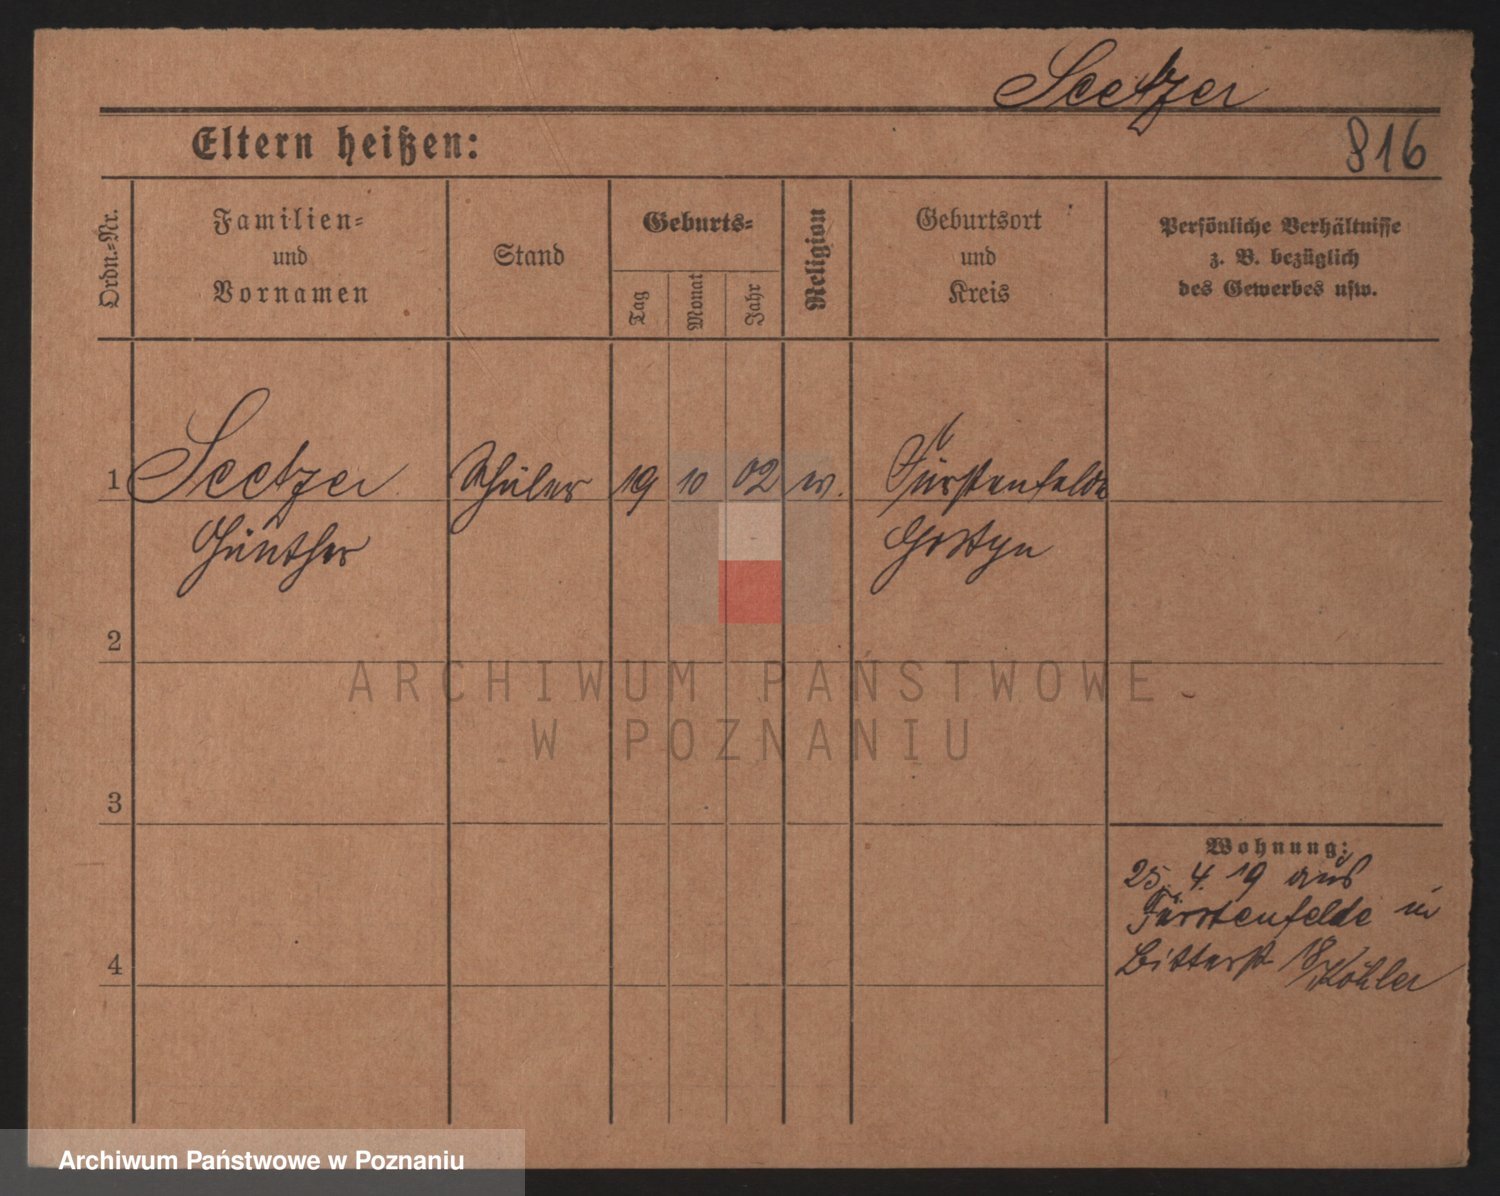 Seetzer
Eltern heißen:
816
Ordn.-Nr.
Familien-
und
Vornamen
Stand
Geburts-
Tag
Monat
Jahr
Religion
Geburtsort
und
Kreis
Persönliche Verhältnisse
z. B. bezüglich
des Gewerbes usw.
1 Seetzer Schüler 19 10 02 w. Fürstenfelde
Günther Gostyn
2
3
4
Wohnung:
25. 4. 19 aus
Fürstenfelde in
Bitterst 18
Köhler
ARCHIWUM PAŃSTWOWE
W POZNANIU
Archiwum Państwowe w Poznaniu